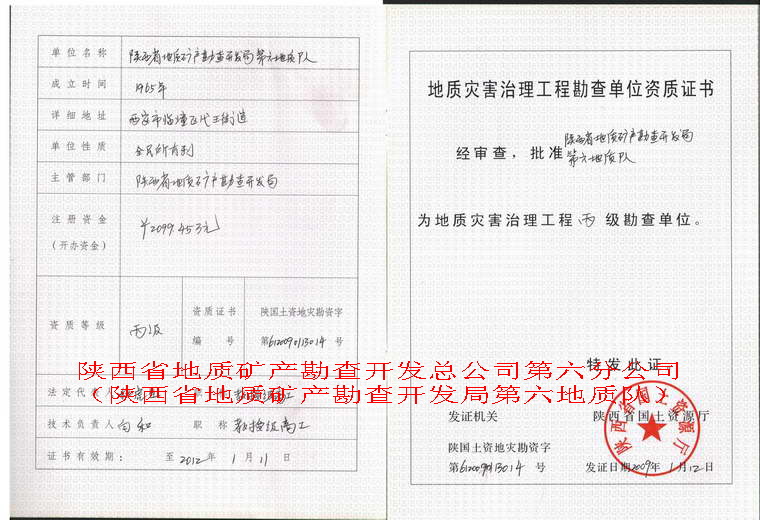 单位名称 陕西省地质矿产勘查开发局第六地质队
成立时间 1965年
详细地址 西安市临潼区代王街道
单位性质 全民所有制
主管部门 陕西省地质矿产勘查开发局
注册资金
（开办资金） ￥2099.45万元
资质等级 丙级
资质证书 陕国土资地灾勘资字
编 号 第6120090113014号
陕西省地质矿产勘查开发总公司第六分公司
（陕西省地质矿产勘查开发局第六地质队）
法定代表人
技术负责人 白和 职称 教授级高工
证书有效期： 至2012年1月11日
地质灾害治理工程勘查单位资质证书
经审查，批准 陕西省地质矿产勘查开发局
第六地质队
为地质灾害治理工程丙级勘查单位。
特发此证
发证机关 陕西省国土资源厅
陕国土资地灾勘资字
第6120090113014号 发证日期2009年1月12日
陕西省国土资源厅